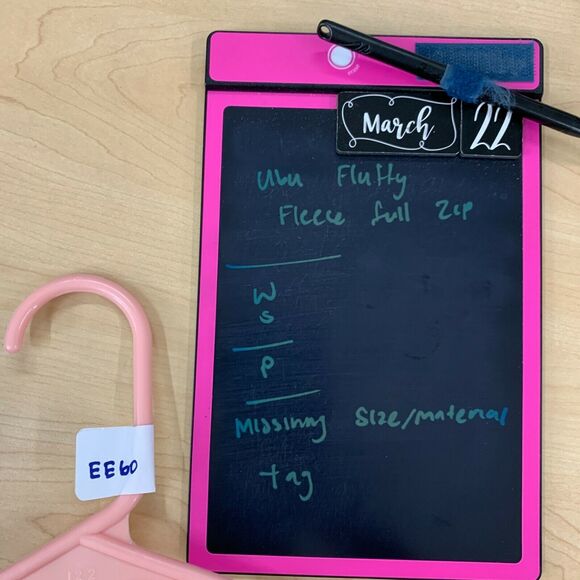 March 22
Ubu Fluffy
Fleece full Zip
W
S
P
Missing Size/material
tag
EE60